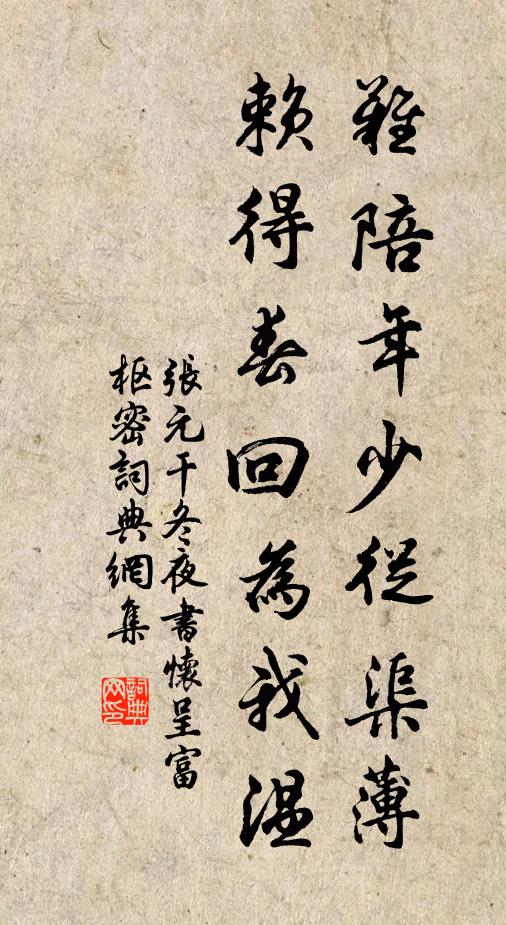 難陪年少從渠薄
賴得春回為我溫
張元干冬夜書懷呈富
枢密詞典網集
詞典网印